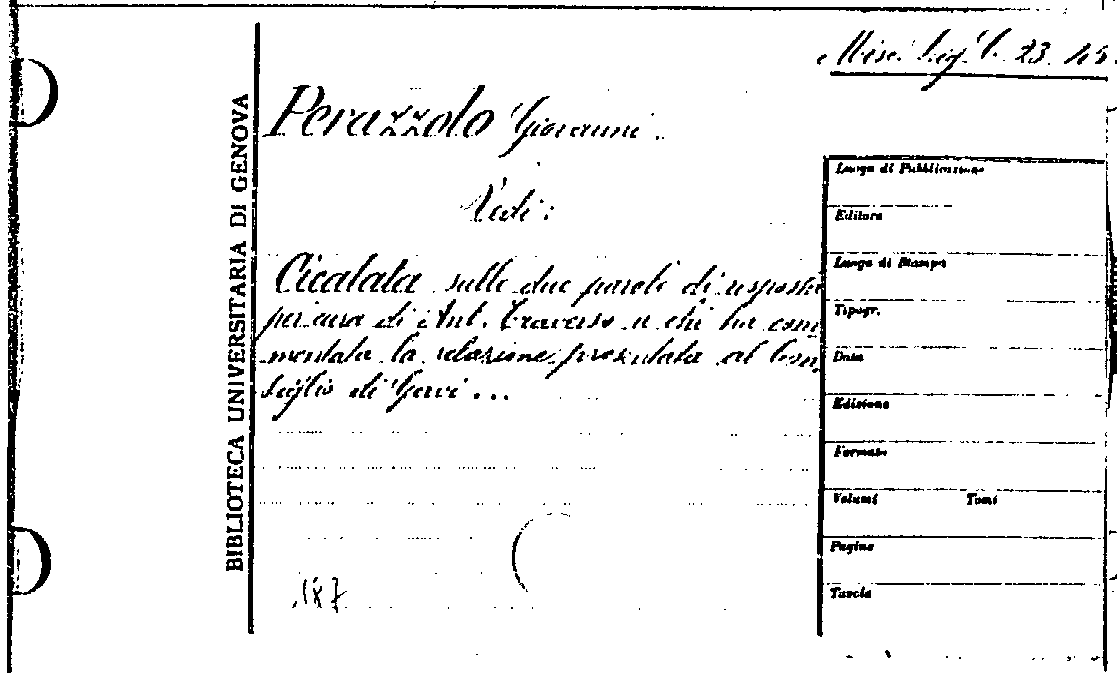 Misc. Lig. b. 23. 45.
BIBLIOTECA UNIVERSITARIA DI GENOVA
Perazzolo Giovanni.
Vedi:
Cicalata sulle due parole di risposta
per cura di Ant. Traverso a chi ha com
mentata la relazione presentata al Con,
siglio di Gavi...
187
Luogo di Pubblicazione
Editore
Luogo di Stampa
Tipogr.
Data
Edizione
Formato
Volumi Tomi
Pagine
Tavole